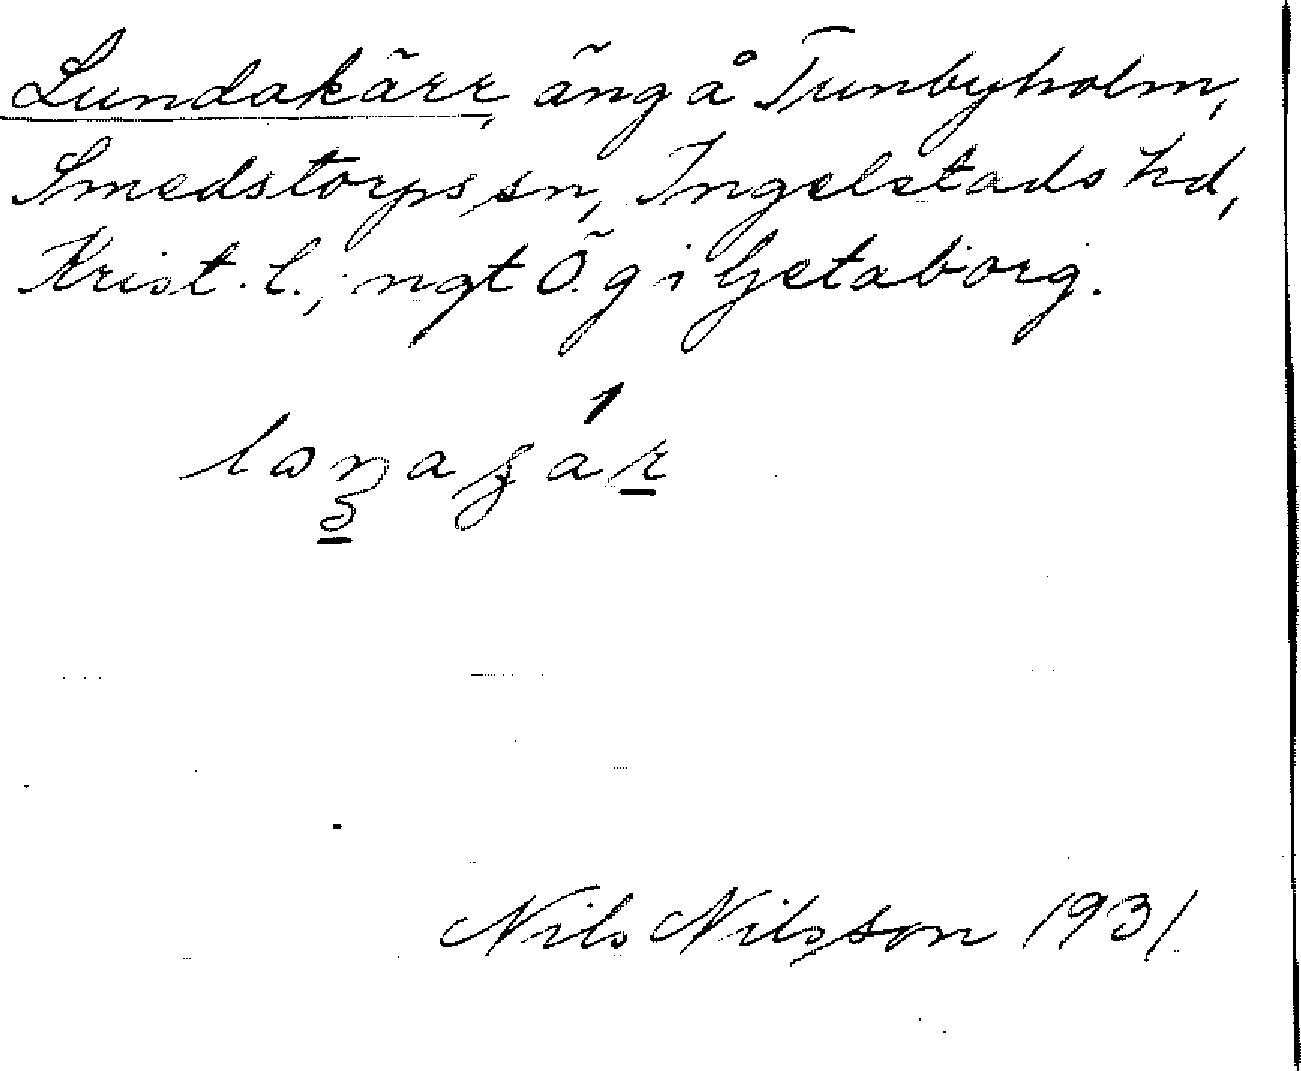 Lundakärr, äng å Tunbyholm,
Smedstorps sn, Ingelstads hd,
Krist. l.; ngt Ö. g i Getaborg.
Nils Nilsson 1931